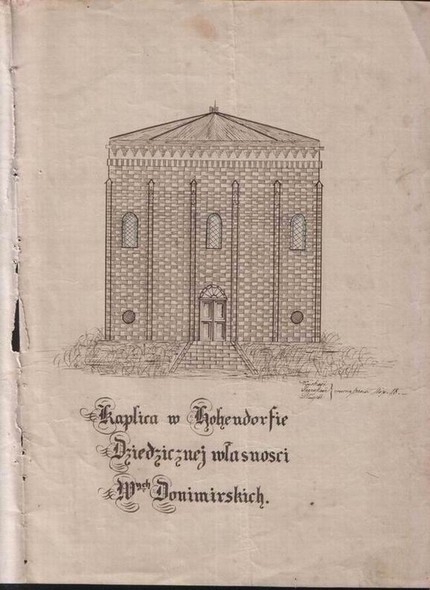 Kaplica w Hohendorfie
Dziedzicznej własnosci
Wych Donimirskich.